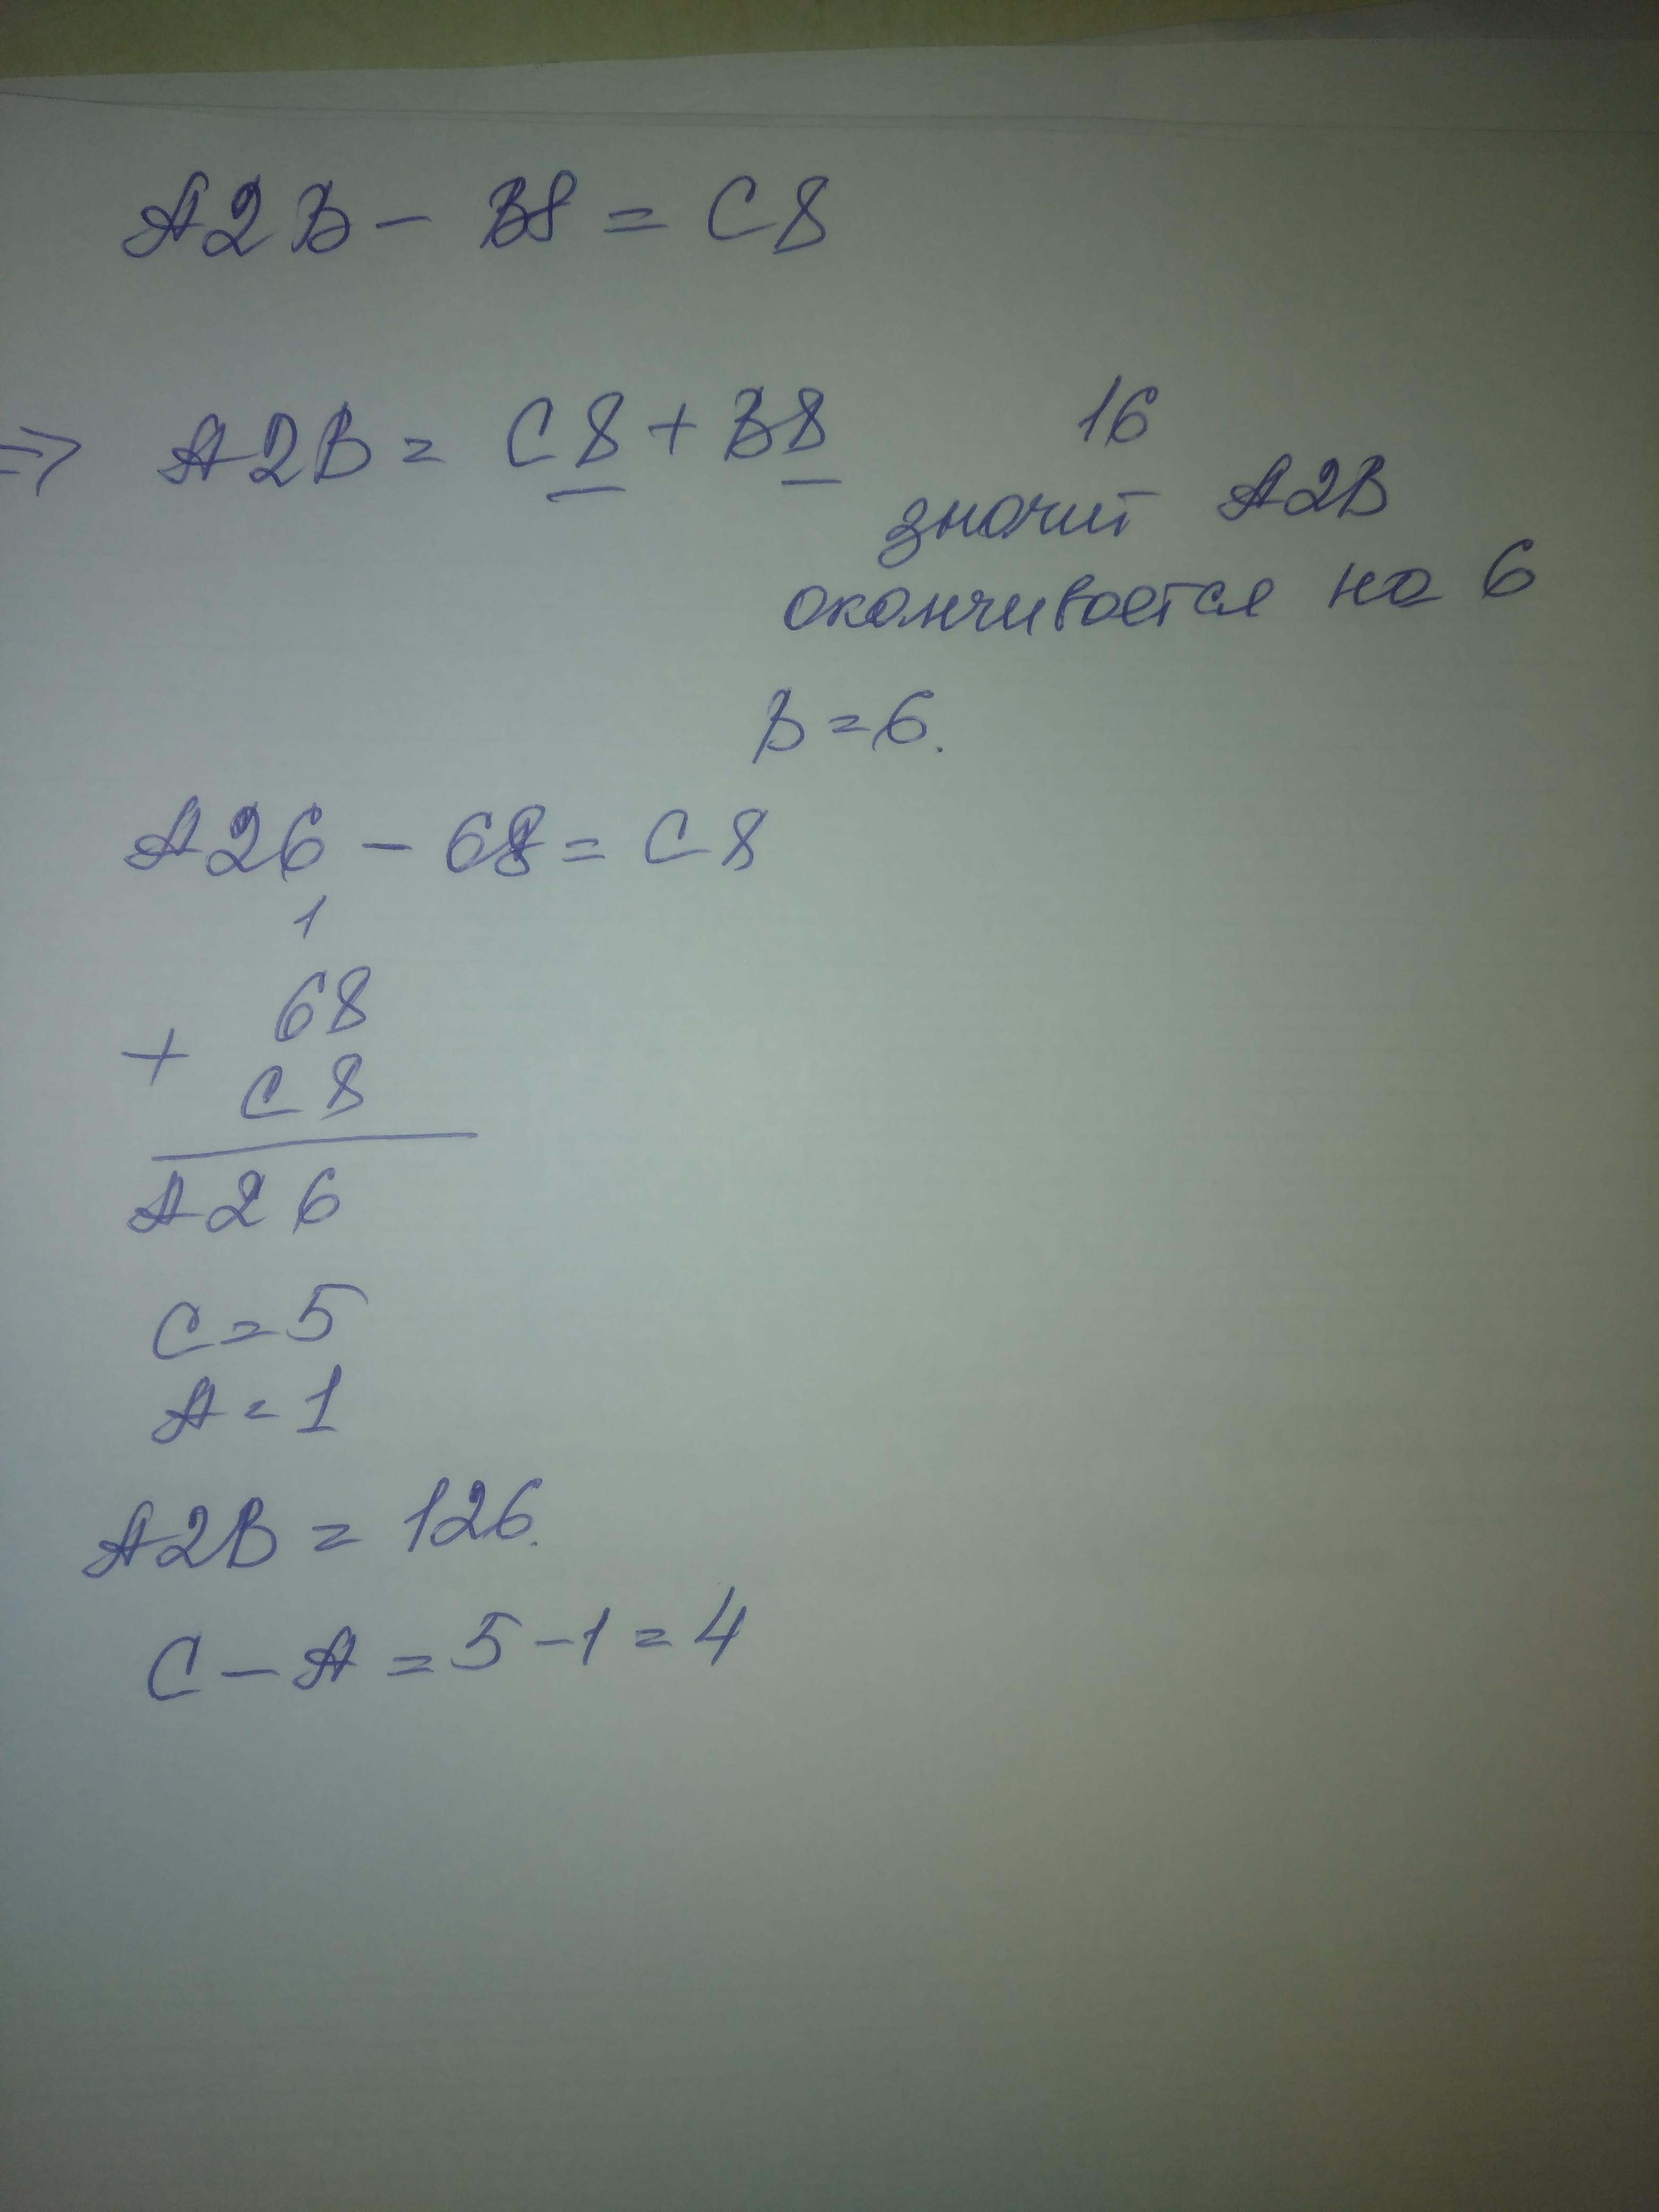 A2B - B8 = C8
⇒ A2B = C8 + B8 16
значит A2B
оканчивается на 6
B = 6.
A26 - 68 = C8
1
68
+
C8
A26
C = 5
A = 1
A2B = 126.
C - A = 5 - 1 = 4